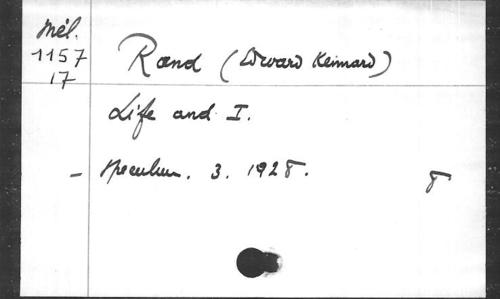 Mél.
1157
17
Rand (Edward Kennard)
Life and I.
- Speculum. 3. 1928.
8